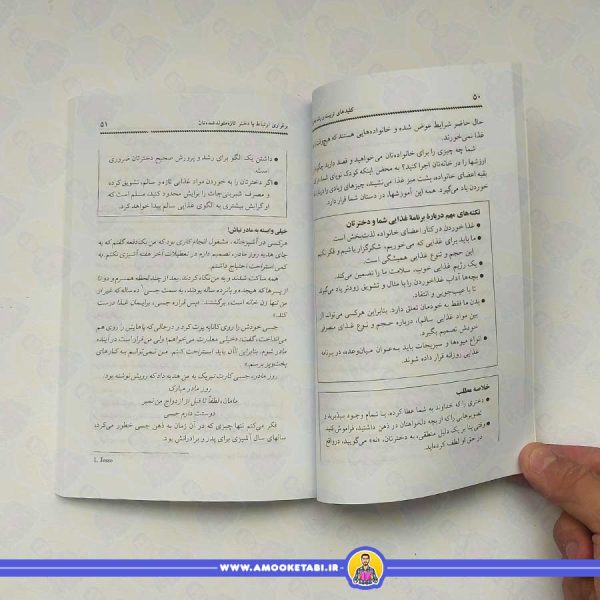 ۵۰
کلیدهای تربیت و رشد
حال حاضر شرایط عوض شده و خانواده‌هایی هستند که هیچ‌وقت
غذا نمی‌خورند.
شما چه چیزی را برای خانواده‌تان می‌خواهید و قصد دارید
ارزشها را در خانه‌تان اجرا کنید؟ به محض اینکه کودک نوپای شما
بقیه اعضای خانواده پشت میز غذا می‌نشیند، چیزهای زیادی را
خوردن یاد می‌گیرد. همه این آموزشها، در دستان شما قرار دارد.
نکته‌های مهم درباره برنامه غذایی شما و دخترتان
غذا خوردن در کنار اعضای خانواده لذت‌بخش است
ما باید برای غذایی که می‌خوریم، شکرگزار باشیم و فکر نکنیم
این حجم و تنوع غذایی همیشگی است.
یک رژیم غذایی خوب، سلامت ما را تضمین می‌کند.
بچه‌ها آداب غذاخوردن را با مثال و تشویق زودتر یاد می‌گیرند
تا با عیب‌جویی و انتقاد.
بدن ما فقط به خودمان تعلق دارد. بنابراین هرکسی می‌تواند (از
بین مواد غذایی سالم)، درباره حجم و نوع غذای مصرفی
خودش تصمیم بگیرد.
انواع میوه‌ها و سبزیجات باید به‌عنوان میان‌وعده، در برنامه
غذایی روزانه قرار داده شوند.
خلاصه مطلب
دختری را که خداوند به شما عطا کرده، با تمام وجود بپذیرید و
تصویرهایی را که از بچه دلخواهتان در ذهن داشتید، فراموش کنید.
وقتی بنا بر یک دلیل منطقی، به دخترتان، «نه» می‌گویید، درواقع
در حق او لطف کرده‌اید.
برقراری ارتباط با دختر تازه‌متولدشده‌تان
۵۱
داشتن یک الگو برای رشد و پرورش صحیح دخترتان ضروری
است.
اگر دخترتان را به خوردن مواد غذایی تازه و سالم، تشویق کرده
و مصرف شیرینی‌جات را برایش محدود کنید، مسلم است که
او گرایش بیشتری به الگوی غذایی سالم پیدا خواهد کرد.
خیلی وابسته به مادر نباش!
هرکسی در آشپزخانه، مشغول انجام کاری بود که من یکدفعه گفتم که به
جای هدیه روز مادر، تصمیم دارم در تعطیلات آخر هفته آشپزی نکنم. به
کمی استراحت احتیاج داشتم.
همه ساکت شدند و به من نگاه کردند. بعد از چند لحظه همسرم و دو تا
از پسرها که هیجده و پانزده ساله بودند، به سمت جسی¹ ده ساله که غیر از
من تنها زن خانه است، برگشتند: «پس قراره جسی، برایمان غذا درست
کند.»
جسی خودش را روی کاناپه پرت کرد و درحالی که پاهایش را روی هم
می‌انداخت، گفت: «خیلی معذرت می‌خواهم! ولی من قرار است در آینده
مادر شوم. بنابراین الآن باید استراحت کنم. من نمی‌توانم به کارهای
پخت‌وپز برسم.»
روز مادر، جسی کارت تبریک به من هدیه داد که رویش نوشته بود.
روز مادر مبارک
مامان، لطفاً تا قبل از ازدواج من نمیر
دوستت دارم جسی
فکر می‌کنم تنها چیزی که در آن زمان به ذهن جسی خطور می‌کرد،
سالهای سال آشپزی برای پدر و برادرانش بود.
WWW.AMOOKETABI.IR